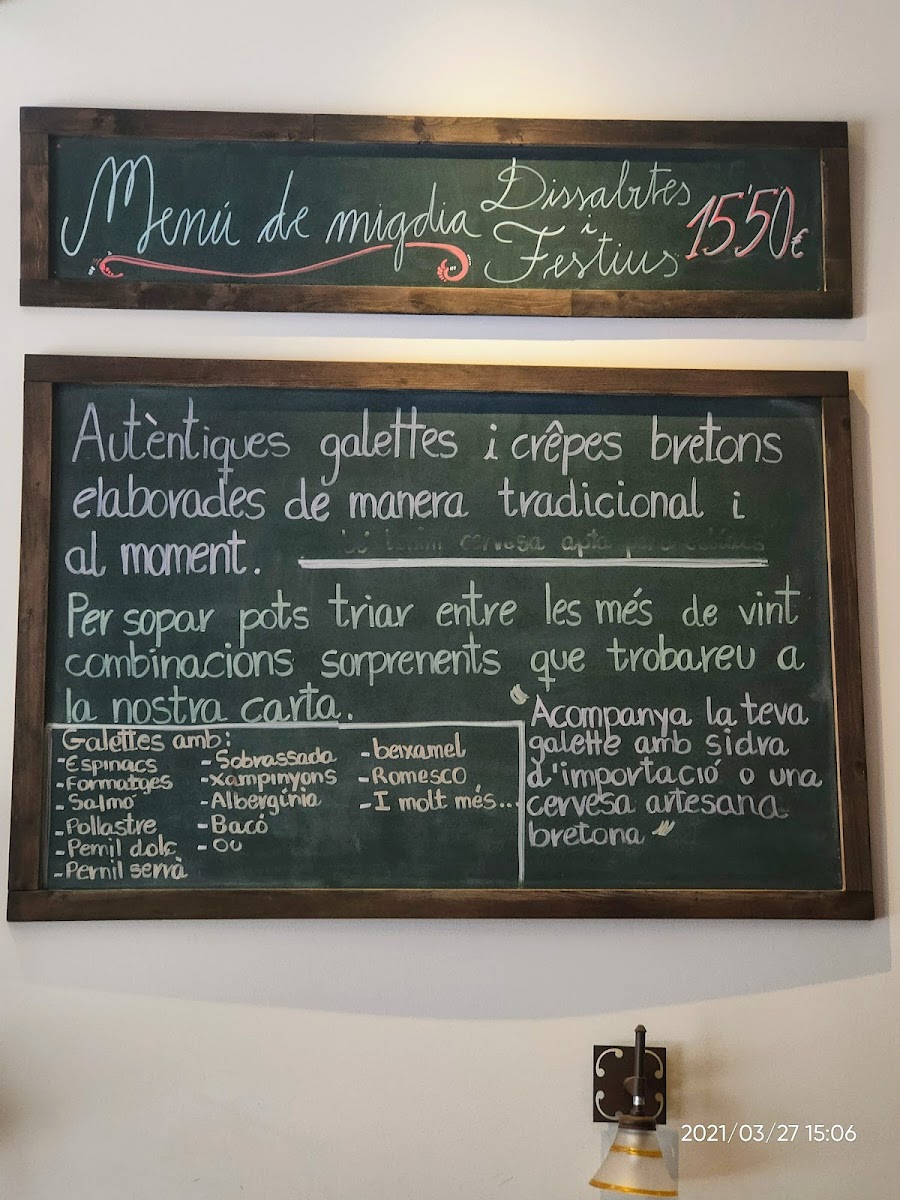 Menú de migdia
Dissabtes
i
Festius
15'50€
Autèntiques galettes i crêpes bretons
elaborades de manera tradicional i
al moment.
cervesa apta
Per sopar pots triar entre les més de vint
combinacions sorprenents que trobareu a
la nostra carta.
Galettes amb:
-Espinacs
-Formatges
-Salmó
-Pollastre
-Pernil dolç
-Pernil serrà
-Sobrassada
-Xampinyons
-Albergínia
-Bacó
-Ou
-beixamel
-Romesco
-I molt més...
Acompanya la teva
galette amb sidra
d'importació o una
cervesa artesana
bretona
2021/03/27 15:06